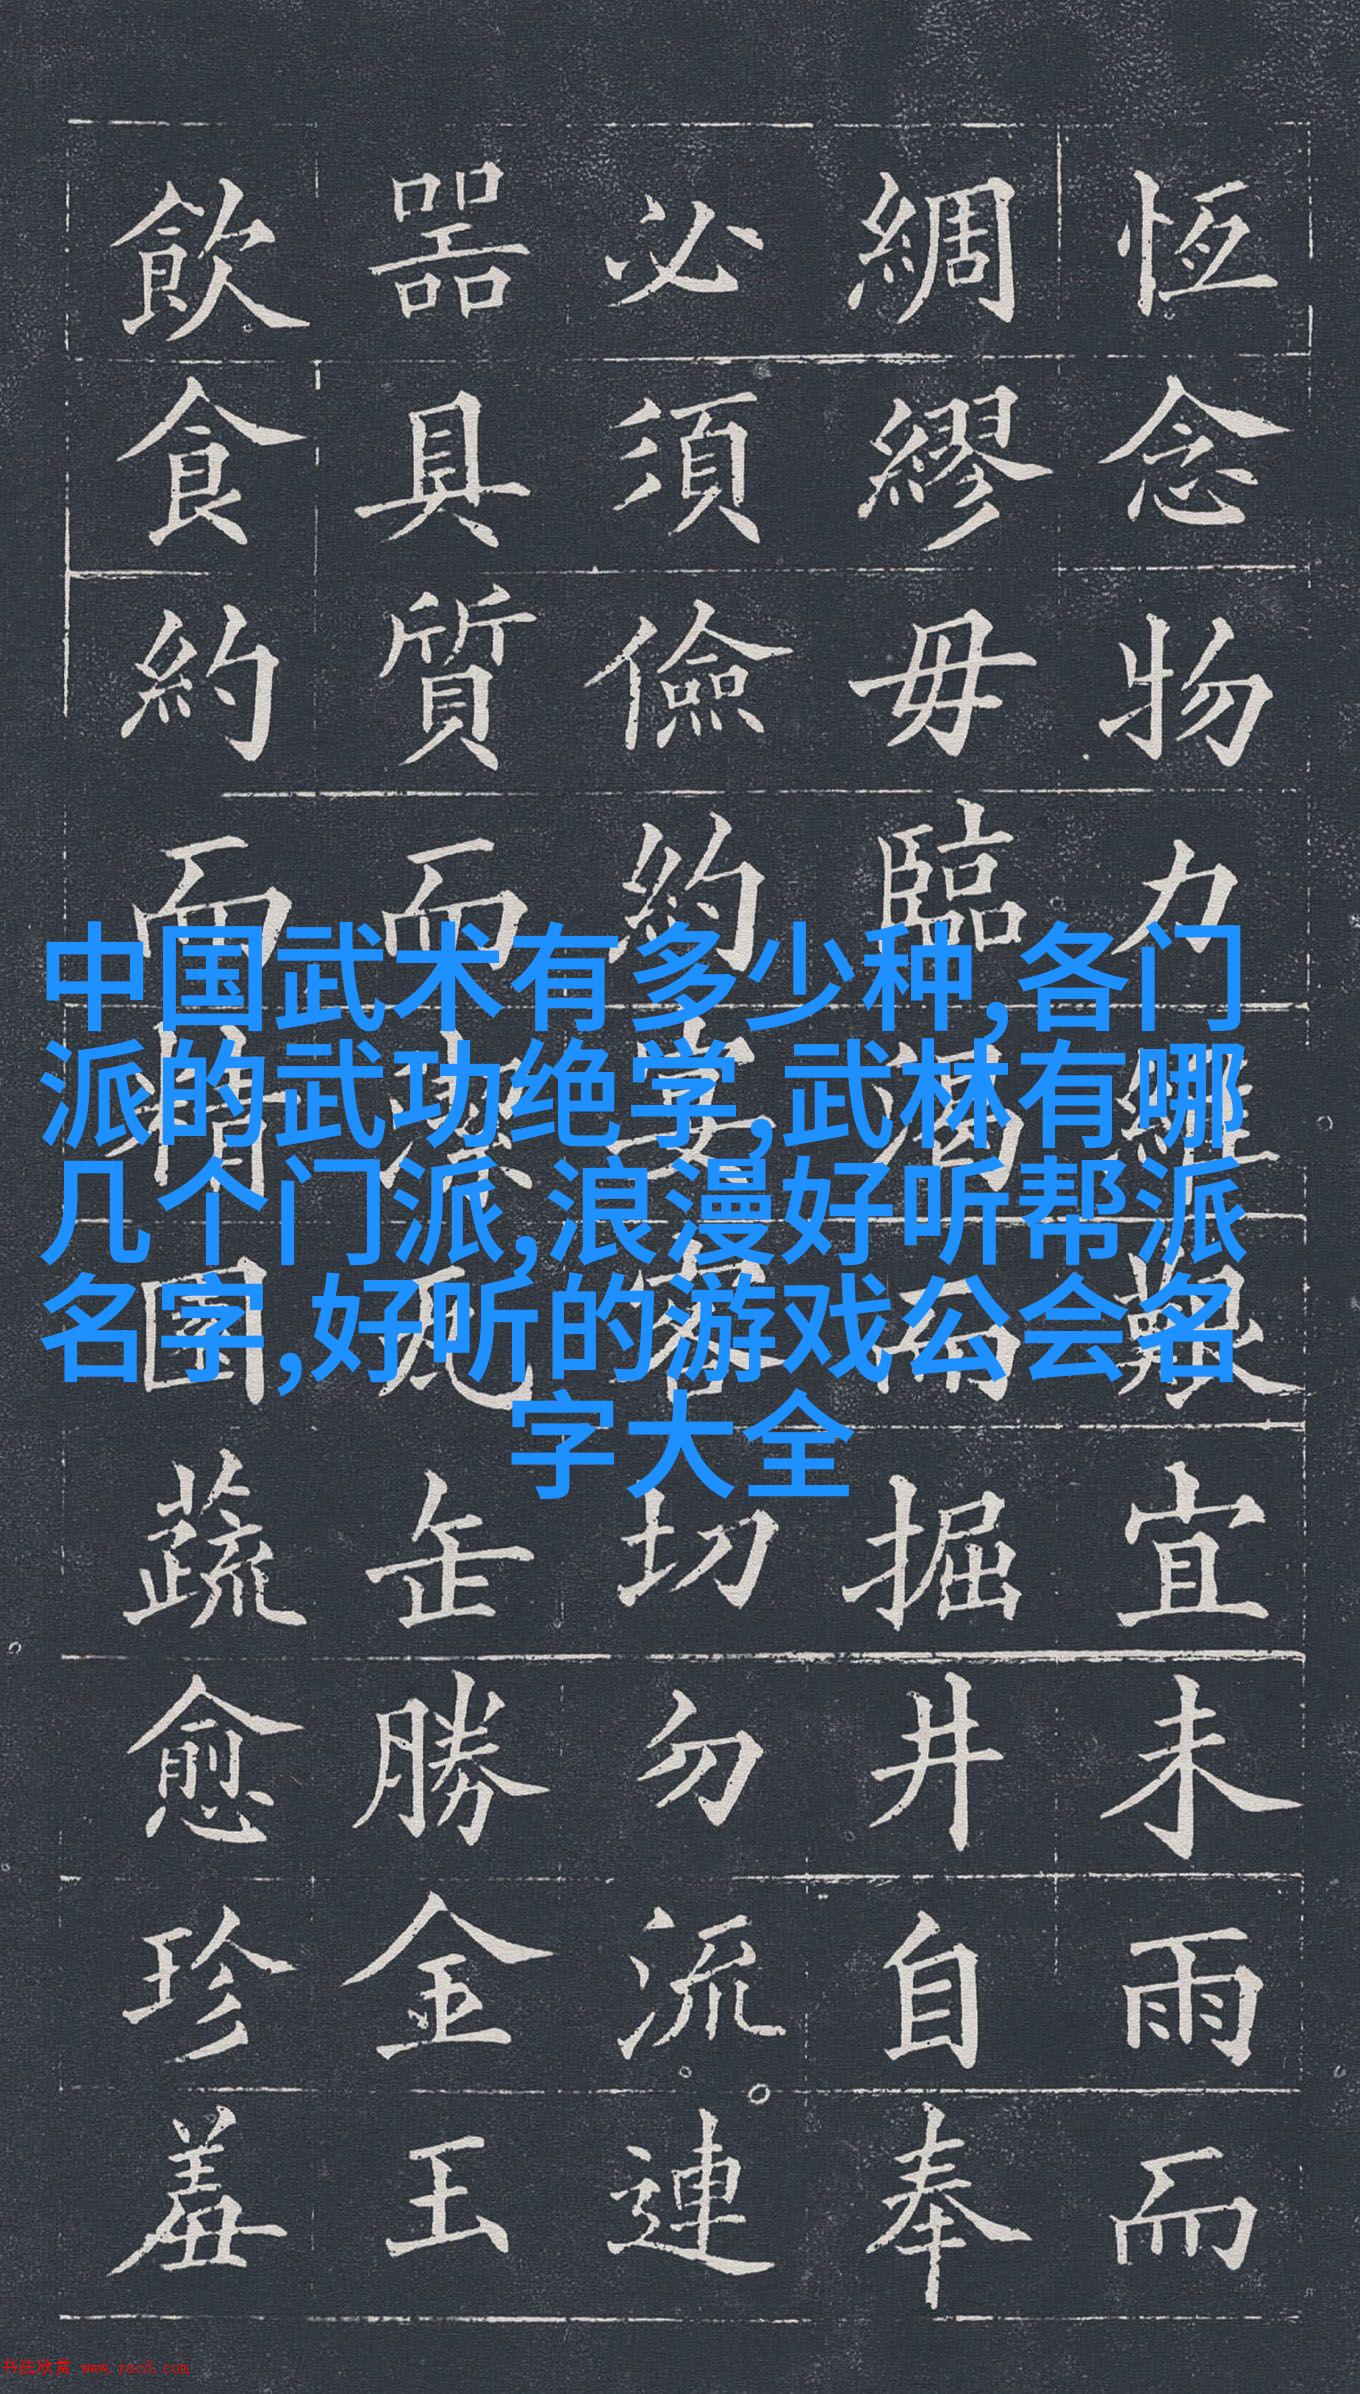 恆念物力維艱宜未雨而
綢繆毋臨渴而掘井自奉
必須儉約宴客切勿流連
器具質而潔瓦缶勝金玉
飲食約而精園蔬愈珍羞
中国武术有多少种,各门
派的武功绝学,武林有哪
几个门派,浪漫好听帮派
名字,好听的游戏公会名
字大全
书法欣赏 www.yac8.com